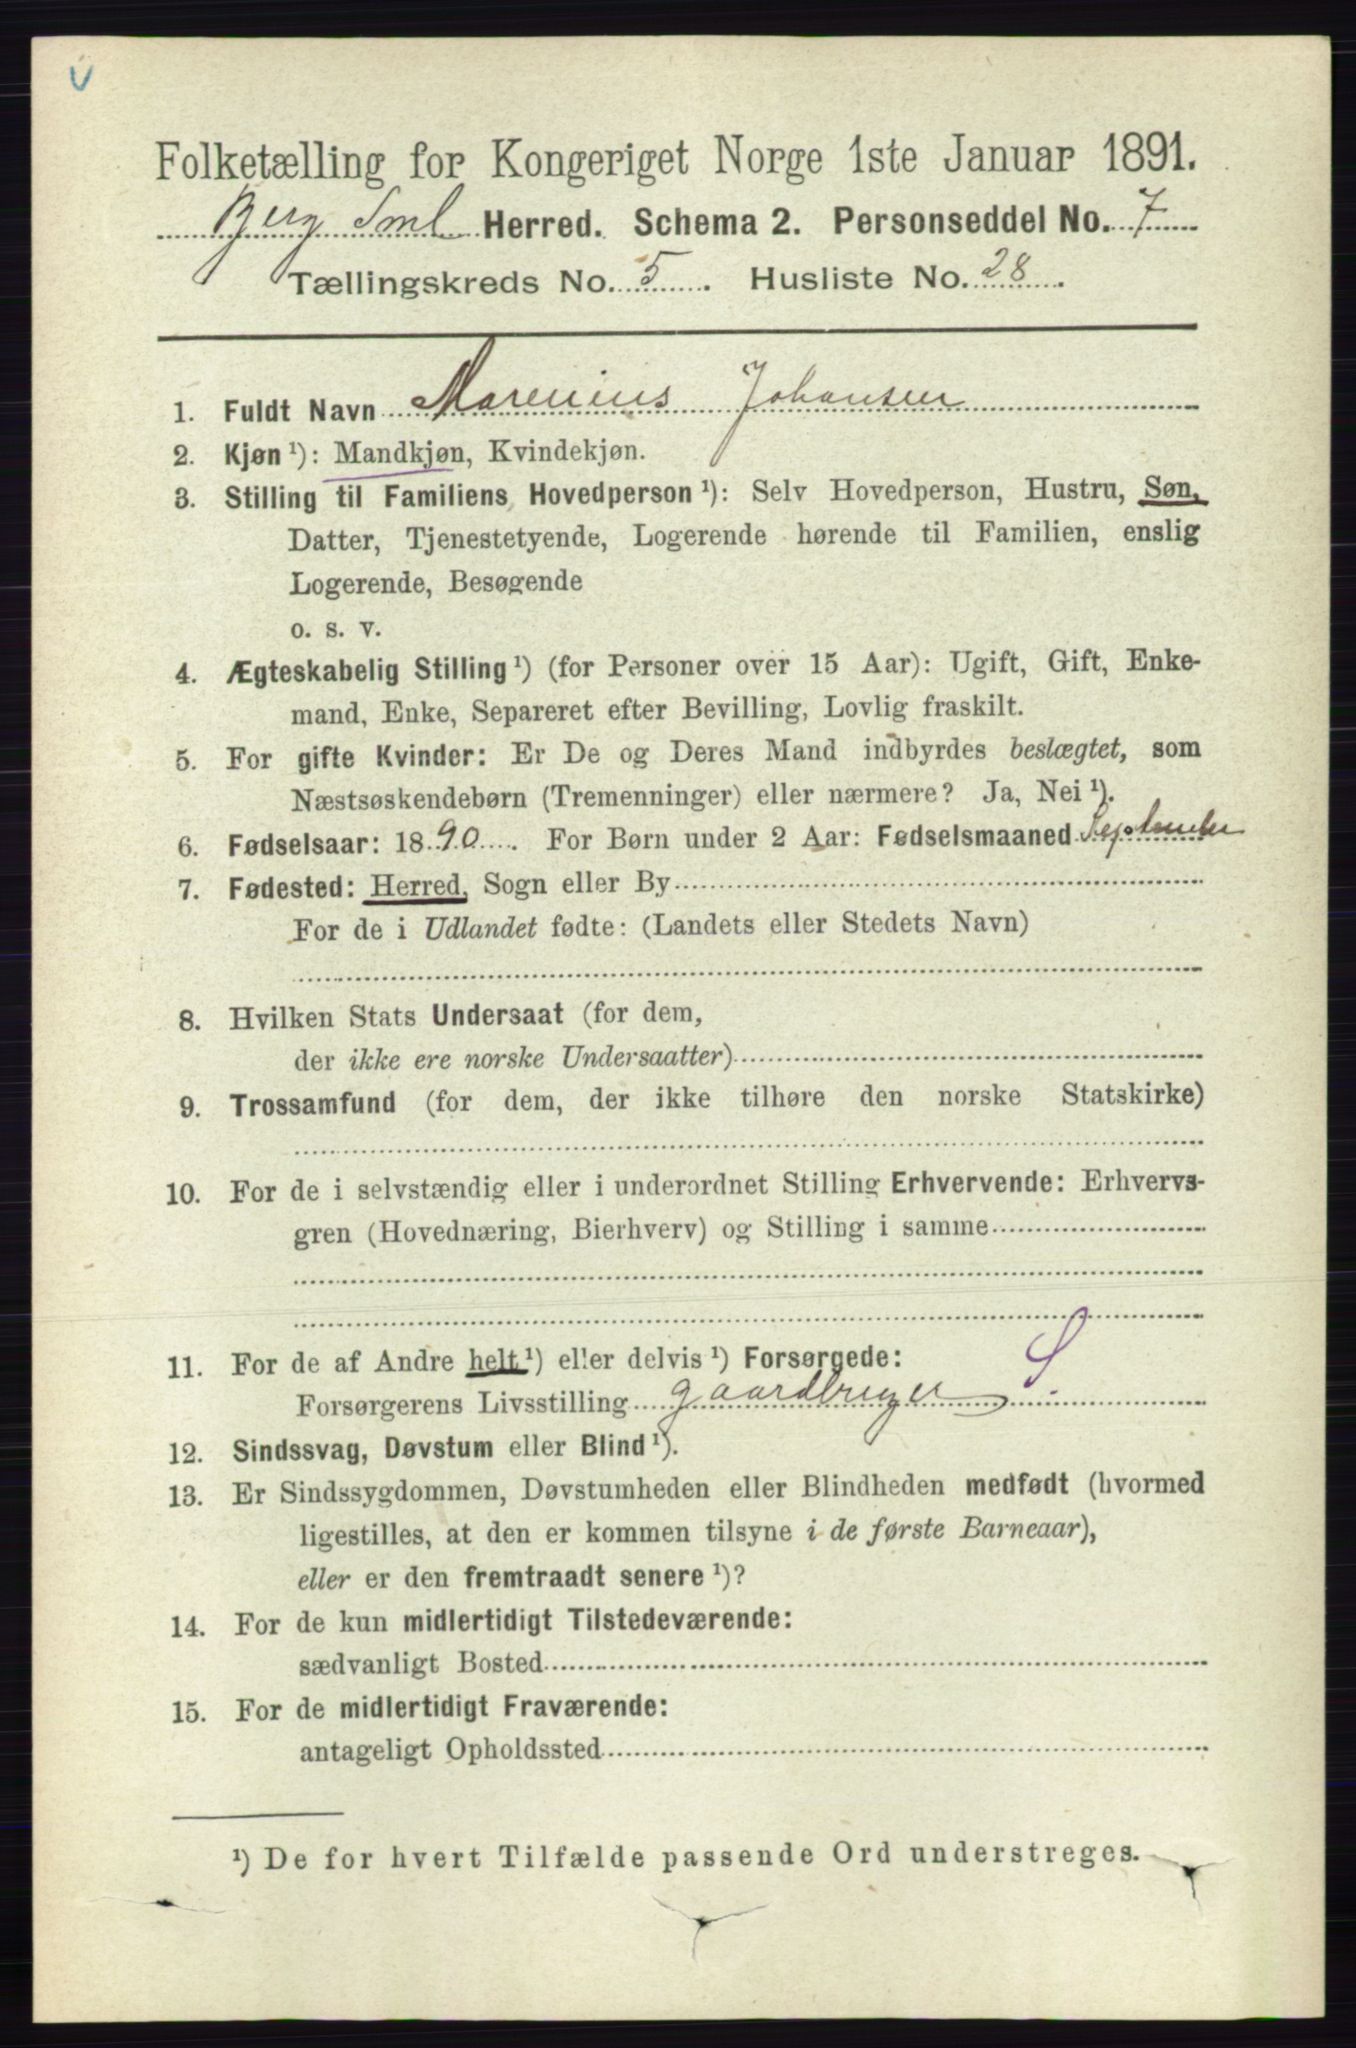 Folketælling for Kongeriget Norge 1ste Januar 1891.
Berg Sml Herred. Schema 2. Personseddel No. 7
Tællingskreds No. 5. Husliste No. 28.
1. Fuldt Navn Marenius Johansen
2. Kjøn ¹): Mandkjøn, Kvindekjøn.
3. Stilling til Familiens Hovedperson ¹): Selv Hovedperson, Hustru, Søn,
Datter, Tjenestetyende, Logerende hørende til Familien, enslig
Logerende, Besøgende
o. s. v.
4. Ægteskabelig Stilling ¹) (for Personer over 15 Aar): Ugift, Gift, Enke-
mand, Enke, Separeret efter Bevilling, Lovlig fraskilt.
5. For gifte Kvinder: Er De og Deres Mand indbyrdes beslægtet, som
Næstsøskendebørn (Tremenninger) eller nærmere? Ja, Nei ¹).
6. Fødselsaar: 1890. For Børn under 2 Aar: Fødselsmaaned September
7. Fødested: Herred, Sogn eller By
For de i Udlandet fødte: (Landets eller Stedets Navn)
8. Hvilken Stats Undersaat (for dem,
der ikke ere norske Undersaatter)
9. Trossamfund (for dem, der ikke tilhøre den norske Statskirke)
10. For de i selvstændig eller i underordnet Stilling Erhvervende: Erhvervs-
gren (Hovednæring, Bierhverv) og Stilling i samme
11. For de af Andre helt ¹) eller delvis ¹) Forsørgede:
Forsørgerens Livsstilling gaardbruger S
12. Sindssvag, Døvstum eller Blind ¹).
13. Er Sindssygdommen, Døvstumheden eller Blindheden medfødt (hvormed
ligestilles, at den er kommen tilsyne i de første Barneaar),
eller er den fremtraadt senere ¹)?
14. For de kun midlertidigt Tilstedeværende:
sædvanligt Bosted
15. For de midlertidigt Fraværende:
antageligt Opholdssted
¹) De for hvert Tilfælde passende Ord understreges.